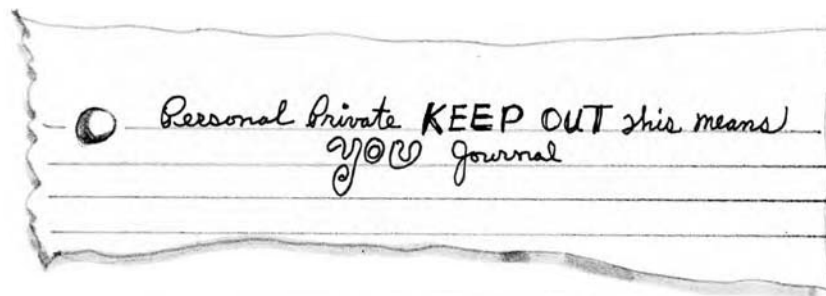 Personal Private KEEP OUT this means
YOU Journal